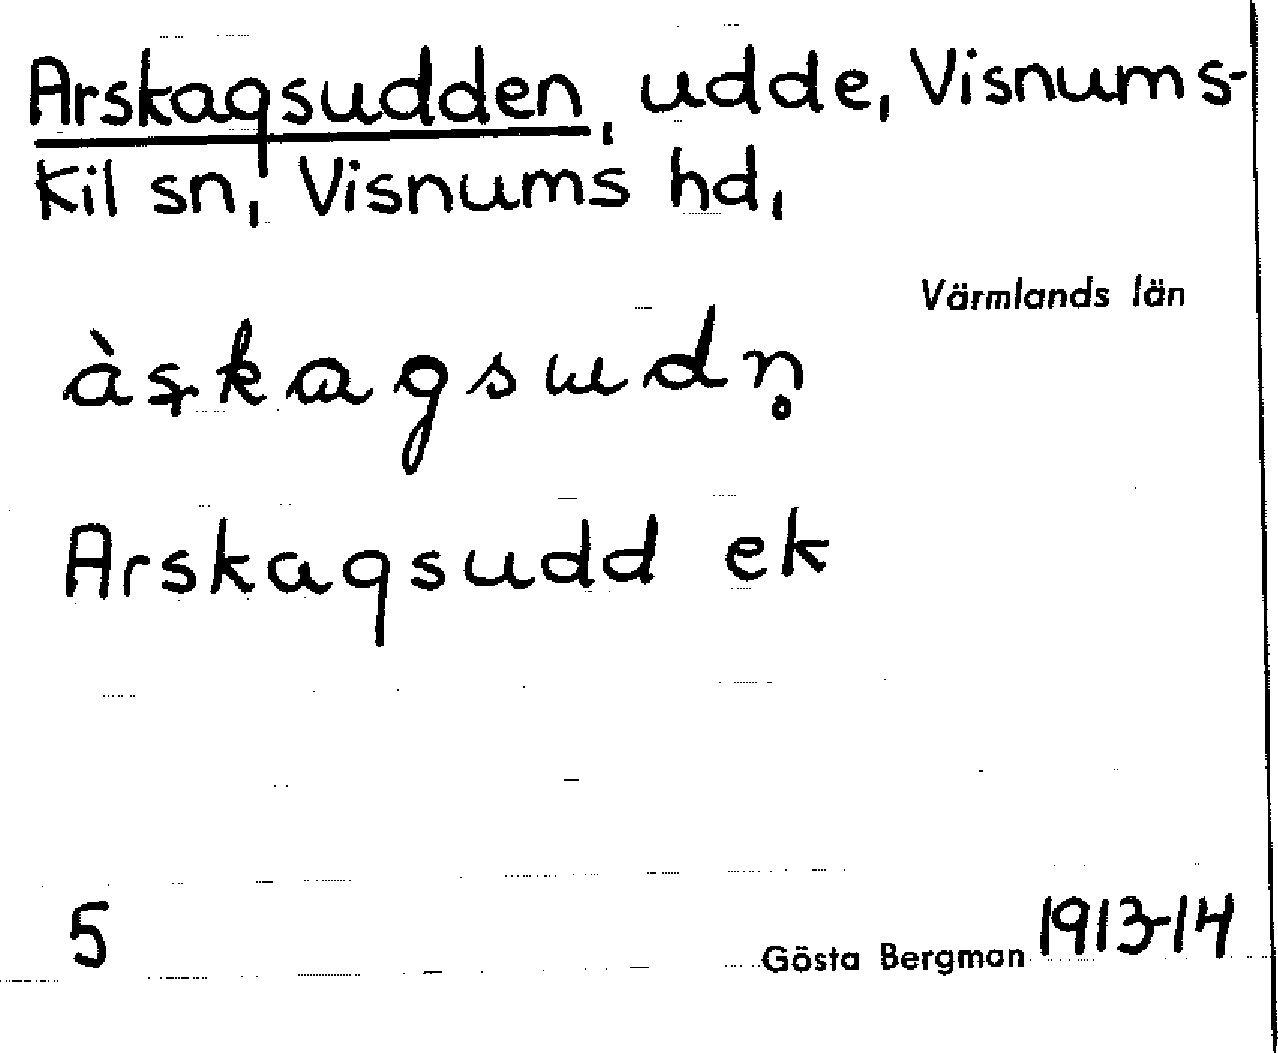 Arskagsudden, udde, Visnums-
Kil sn, Visnums hd,
Värmlands län
àşkagsudn̥
Arskagsudd ek
5
Gösta Bergman 1913-14